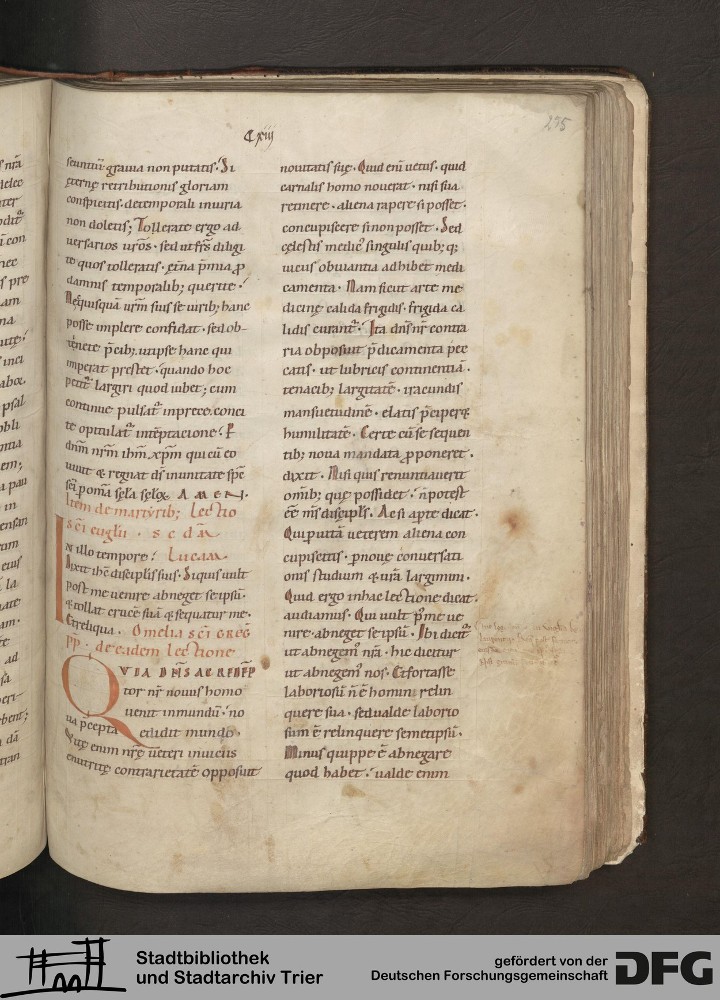 Cxiij
235
seuntiu᷒ gravia non putatis. Si
ęternę retributionis gloriam
conspicitis. de temporali iniuria
non doletis; Tollerate ergo ad
uersarios ur̄os. sed ut fr̄s diligi
te quos tolleratis. etn̄a p̄mia p̱
damnis temporalib; querite.
Neq; quisquā urm̄ suis se uirib; hanc
posse implere confidat. sed ob-
tinete p̄cib; ut ipse hanc qui
imperat prestet. quando hoc
petit᷑ largiri quod iubet; cum
continue pulsat᷑ in prece. conci
te opitulat᷑ in tēptacione. P
dn̄m nr̄m ih̄m xp̄m qui cū eo
uiuit & regnat ds̄ in unitate sp̄c
sc̄i p̱ om̄a sc̄la sc̄loꝝ. AMEN.
Item de martyrib; Lectio
sc̄i eug̅lii. scdā
In illo tempore. Lucam
Dixit ih̄c discipl̄is suis. Siquis uult
post me uenire abneget se ipsū.
& tollat crucē suā & sequatur me.
Et reliqua. Omelia sc̄i greḡ
pp̄. de eadem lectione
QVIA DN̄S AC REDĒP
tor nr̄ nouus homo
uenit in mundū. no
ua p̱cepta edidit mundo.
Uitę enim nrę ueteri in uiciis
enutritę contrarietatē opposuit
nouitatis suę. Quid enī uetus. quid
carnalis homo nouerat. nisi sua
retinere. aliena rapere si posset.
concupiscere si non posset. Sed
cęlestis medic᷒ singulis quib; q;
uiciis obuiantia adhibet medi
camenta. Nam sicut arte me
dicinę calida frigidis. frigida ca
lidis curant᷑. Ita dn̄s nr̄ contra
ria opposuit p̄dicamenta pec
catis. ut lubricis continentiā.
tenacib; largitatē. iracundis
mansuetudinē. elatis p̄ciperet
humilitatē. Certe cū se sequen
tib; noua mandata p̱poneret.
dixit. Nisi quis renuntiauerit
om̄ib; quę possidet. n̄ potest
eē m̄s discipl̄s. Ac si ap̱te dicat.
Qui p̱ uitā ueterem aliena con
cupiscitis. p̱ nouę conuersati
onis studium & ura̅ largimini.
Quid ergo in hac lectione dicat.
audiamus. Qui uult p̄ me ue
nire. abneget se ipsū. Ibi dicit᷑
ut abnegem᷒ nr̄a. hic dicitur
ut abnegem᷒ nos. Et fortasse
laboriosū n̄ ē homini relin
quere sua. sed ualde laborio
sum ē relinquere semetipsū.
Minus quippe ē abnegare
quod habet. ualde enim
Stadtbibliothek
und Stadtarchiv Trier
gefördert von der
Deutschen Forschungsgemeinschaft
DFG